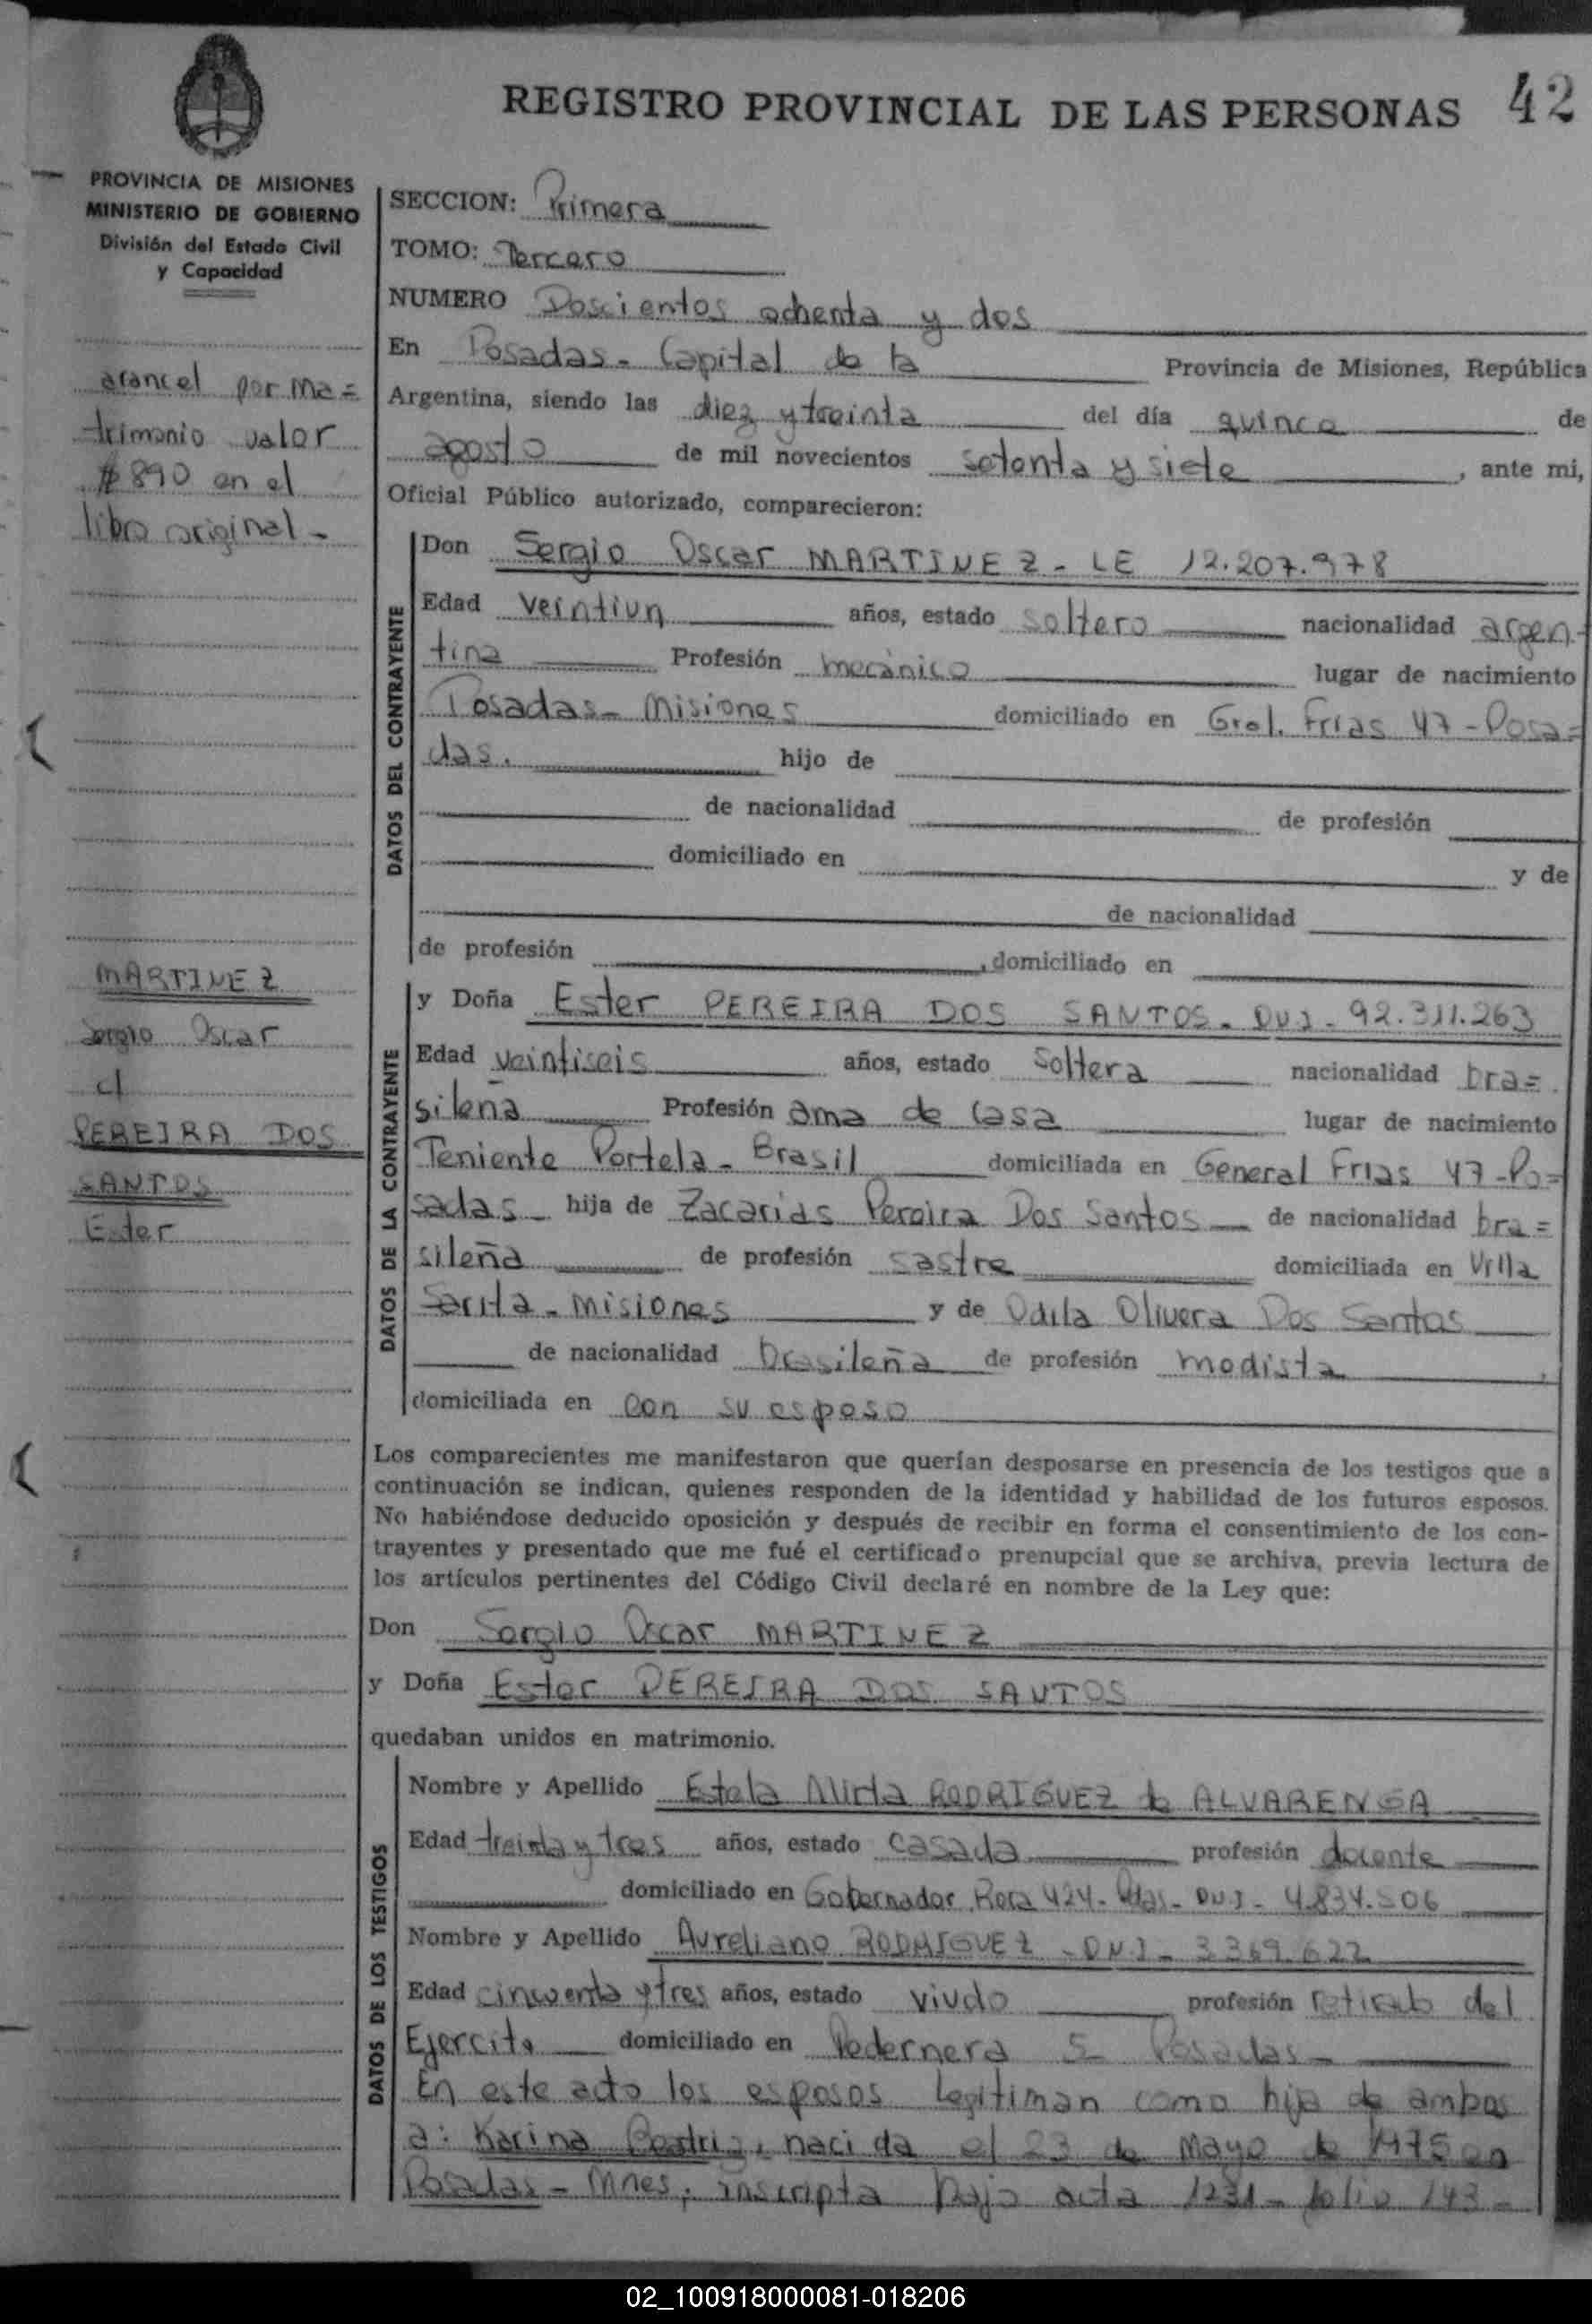 REGISTRO PROVINCIAL DE LAS PERSONAS 42
PROVINCIA DE MISIONES
MINISTERIO DE GOBIERNO
División del Estado Civil
y Capacidad
arancel por ma=
trimonio valor
$890 en el
libro original -
MARTINEZ
Sergio Oscar
c/
PEREIRA DOS
SANTOS
Ester
SECCION: Primera
TOMO: Tercero
NUMERO Doscientos ochenta y dos
En Posadas - Capital de la Provincia de Misiones, República
Argentina, siendo las diez y treinta del día quince de
agosto de mil novecientos setenta y siete, ante mi,
Oficial Público autorizado, comparecieron:
DATOS DEL CONTRAYENTE
Don Sergio Oscar MARTINEZ - LE 12.207.978
Edad veintiun años, estado soltero nacionalidad argen-
tina Profesión mecánico lugar de nacimiento
Posadas - Misiones domiciliado en Gral. Frias 47 - Posa=
das. hijo de
de nacionalidad de profesión
domiciliado en y de
de nacionalidad
de profesión , domiciliado en
DATOS DE LA CONTRAYENTE
y Doña Ester PEREIRA DOS SANTOS - DNI - 92.311.263
Edad veintiseis años, estado soltera nacionalidad bra=
sileña Profesión ama de casa lugar de nacimiento
Teniente Portela - Brasil domiciliada en General Frias 47 - Po=
sadas - hija de Zacarias Pereira Dos Santos de nacionalidad bra=
sileña de profesión sastre domiciliada en Villa
Sarita - Misiones y de Odila Olivera Dos Santos
de nacionalidad brasileña de profesión modista,
domiciliada en con su esposo
Los comparecientes me manifestaron que querían desposarse en presencia de los testigos que a
continuación se indican, quienes responden de la identidad y habilidad de los futuros esposos.
No habiéndose deducido oposición y después de recibir en forma el consentimiento de los con-
trayentes y presentado que me fué el certificado prenupcial que se archiva, previa lectura de
los artículos pertinentes del Código Civil declaré en nombre de la Ley que:
Don Sergio Oscar MARTINEZ
y Doña Ester PEREIRA DOS SANTOS
quedaban unidos en matrimonio.
DATOS DE LOS TESTIGOS
Nombre y Apellido Estela Mirta RODRIGUEZ de ALVARENGA
Edad treinta y tres años, estado casada profesión docente
domiciliado en Gobernador Roca 424 - Pdas - DNI - 4.834.506
Nombre y Apellido Aureliano RODRIGUEZ - DNI - 3369.622
Edad cincuenta y tres años, estado viudo profesión retirado del
Ejercito domiciliado en Pedernera 5 Posadas -
En este acto los esposos legitiman como hija de ambos
a: Karina Beatriz, nacida el 23 de Mayo de 1975 en
Posadas - Mnes, inscripta bajo acta 1231 - folio 143 -
02_100918000081-018206